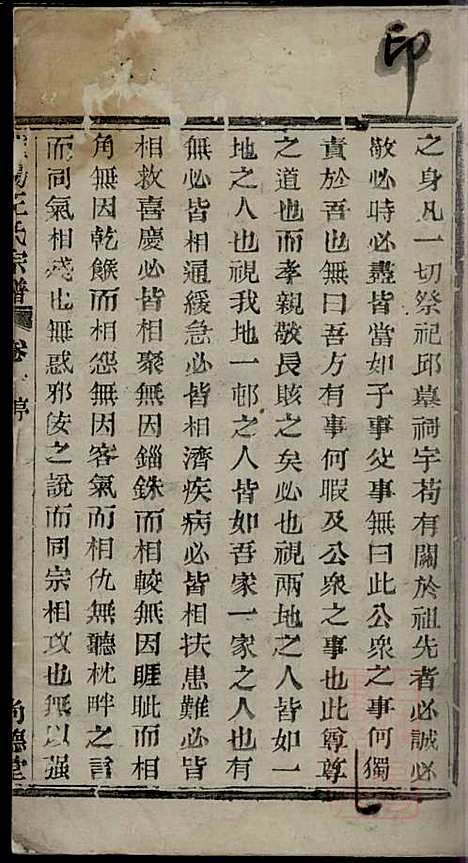 印
之身凡一切祭祀邱墓祠宇苟有關於祖先者必誠必
敬必時必盡皆當如子事父事無曰此公衆之事何獨
責於吾也無曰吾方有事何暇及公衆之事也此尊尊
之道也而孝親敬長賅之矣必也視兩地之人皆如一
地之人也視我地一邨之人皆如吾家一家之人也有
無必皆相通緩急必皆相濟疾病必皆相扶患難必皆
相救喜慶必皆相聚無因錙銖而相較無因睚眦而相
角無因乾餱而相怨無因客氣而相仇無聽枕畔之言
而同氣相殘也無惑邪侫之說而同宗相攻也無以强
陽王氏宗譜 卷 序 尚德堂